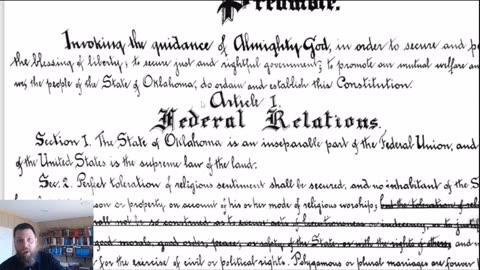 Preamble.
Invoking the guidance of Almighty God, in order to secure and pe
the blessing of liberty; to secure just and rightful government; to promote our mutual welfare and
we, the people of the State of Oklahoma, do ordain and establish this Constitution.
Article I.
Federal Relations.
Section 1. The State of Oklahoma is an inseparable part of the Federal Union, and
of the United States is the supreme law of the land.
Sec. 2. Perfect toleration of religious sentiment shall be secured, and no inhabitant of the S
son or property on account of his or her mode of religious worship; but the toleration of reli
shall not be so construed as to
good order, peace, or safety of the State or with the rights of others; and
for the exercise of civil or political rights. Polygamous or plural marriages are forever